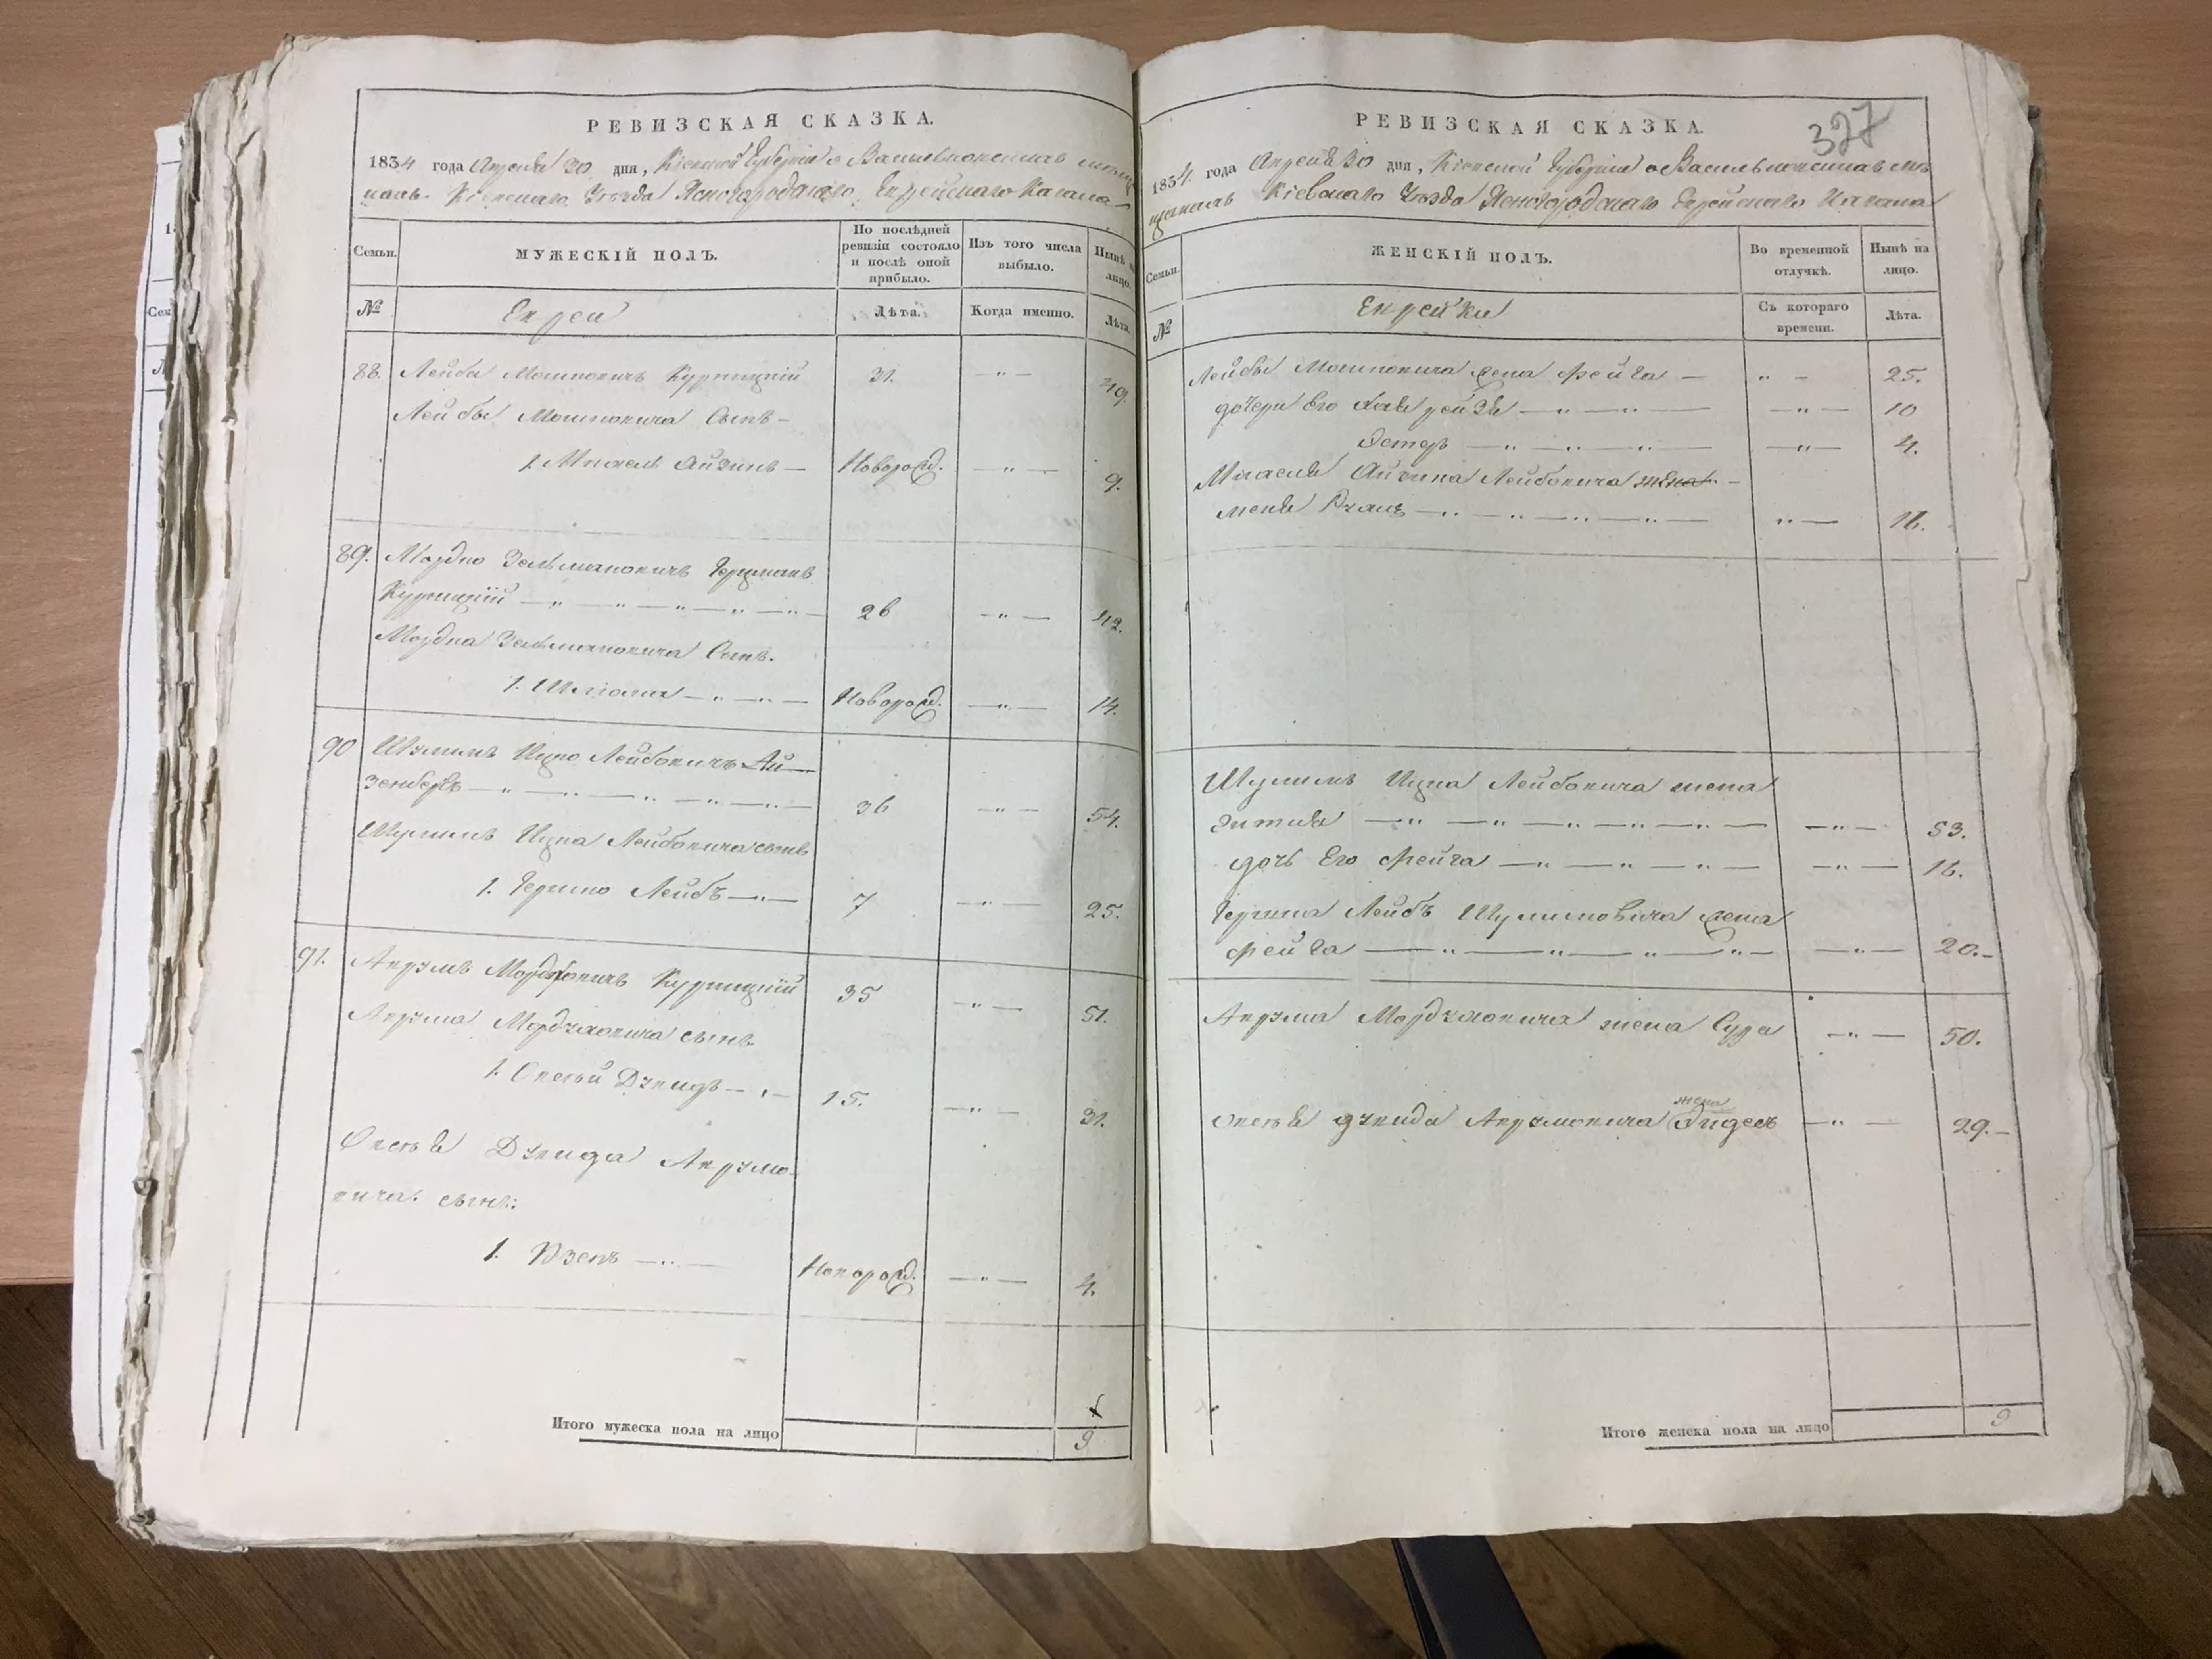 РЕВИЗСКАЯ СКАЗКА.
1834 года Апреля 30 дня, Кіевской Губерніи о Васильковских мѣща
нахъ Кіевскаго Уѣзда Ясногородскаго Еврейскаго Кагала
Семьи.
МУЖЕСКІЙ ПОЛЪ.
По послѣдней ревизіи состояло и послѣ оной прибыло.
Изъ того числа выбыло.
Нынѣ на лицо.
№
Евреи
Лѣта.
Когда именно.
Лѣта.
88. Лейба Мошковичъ Курницкій 31. —"— 49.
Лейбы Мошковича Сынъ —
1. Михель Айзикъ — Новорожд. —"— 9.
89. Мордко Зельмановичъ Герцманъ
Курницкій —"—"—"—"—"— 26 —"— 42.
Мордка Зельмановича Сынъ.
1. —"—"— Новорожд. —"— 14.
90 Шулимъ Ицко Лейбовичъ Ай-
зенбергъ —"—"—"—"—"— 36 —"— 54.
Шулимъ Ицка Лейбовича сынъ
1. Гершко Лейбъ —"— 7 —"— 25.
91. Аврумъ Мордковичъ Курницкій 35 —"— 51.
Аврума Мордховича сынъ
1. Овсей Дувидъ —"— 15. —"— 31.
Овсея Дувида Аврумо-
вича сынъ:
1. —"— Новорожд. —"— 4.
Итого мужеска пола на лицо 9
РЕВИЗСКАЯ СКАЗКА.
327
1834 года Апреля 30 дня, Кіевской Губерніи о Васильковскихъ мѣ
щанахъ Кіевскаго Уѣзда Ясногородскаго Еврейскаго Кагала
Семьи.
ЖЕНСКІЙ ПОЛЪ.
Во временной отлучкѣ.
Нынѣ на лицо.
№
Еврейки
Съ котораго времени.
Лѣта.
Лейбы Мошковича жена Фейга — "— 25.
дочери Его Хая рейзя —"—"— —"— 10
Эстеръ —"—"—"— —"— 4.
Айзика Лейбовича жена —
—"—"—"—"— "— 16.
Шулимъ Ицка Лейбовича жена
—"—"—"—"—"— —"— 53.
дочь Его Фейга —"—"—"—"— —"— 16.
Гершка Лейбъ Шулимовича жена
Фейга —"—"—"—"— —"— 20.—
Аврума Мордховича жена Сура —"— 50.
жена
Овсея дувида Аврумовича —"— 29.—
Итого женска пола на лицо 9